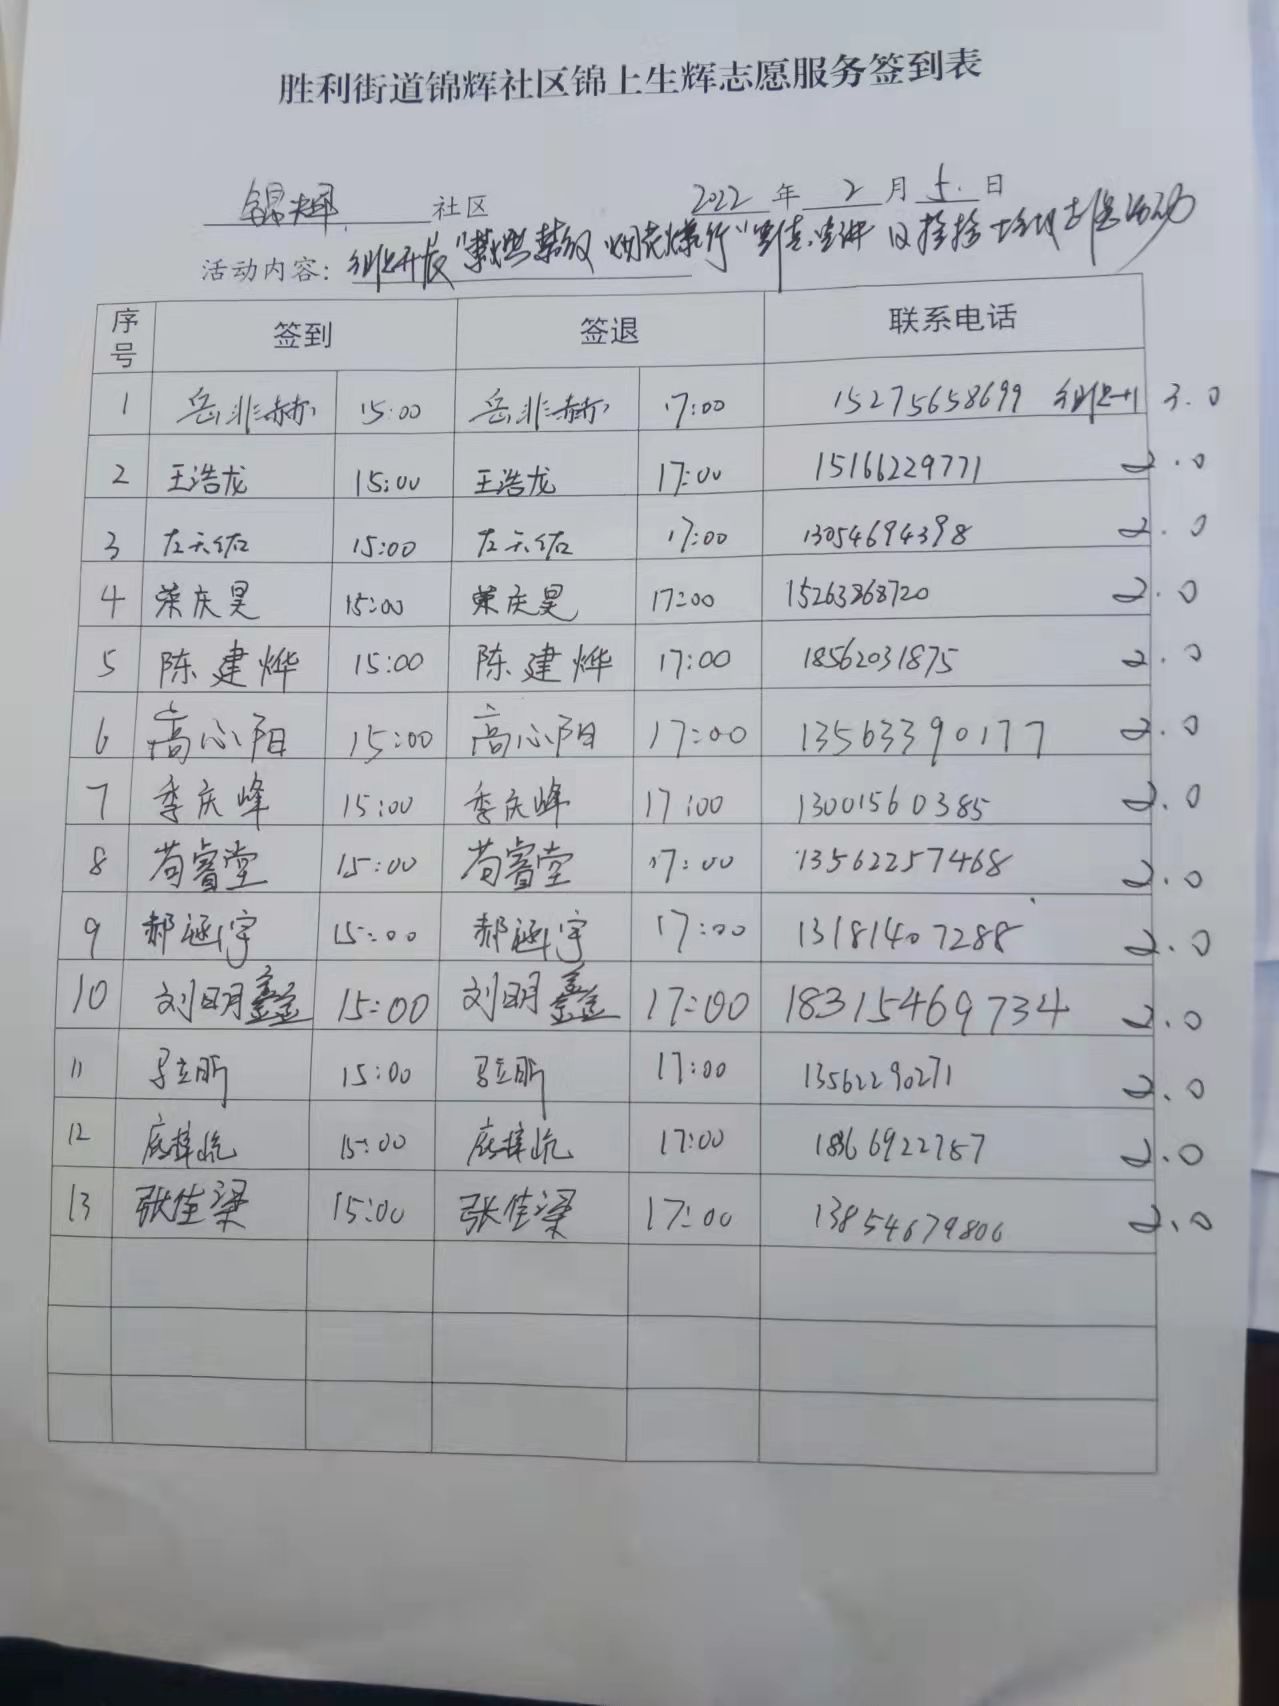 胜利街道锦辉社区锦上生辉志愿服务签到表
锦辉 社区 2022 年 2 月 5. 日
活动内容: 组织开展"禁燃禁放 烟花爆竹"宣传
序号 签到 签退 联系电话
1 岳非赫 15:00 岳非赫 17:00 15275658699 组织+1 3.0
2 王浩龙 15:00 王浩龙 17:00 15166229771 2.0
3 左天佑 15:00 左天佑 17:00 13054694398 2.0
4 荣庆昊 15:00 荣庆昊 17:00 15263868720 2.0
5 陈建烨 15:00 陈建烨 17:00 18562031875 2.0
6 高心阳 15:00 高心阳 17:00 13563390177 2.0
7 季庆峰 15:00 季庆峰 17:00 13001560385 2.0
8 苟睿堂 15:00 苟睿堂 17:00 13562257468 2.0
9 郝涵宇 15:00 郝涵宇 17:00 13181407288 2.0
10 刘明鑫 15:00 刘明鑫 17:00 18315469734 2.0
11 马立昕 15:00 马立昕 17:00 13562290271 2.0
12 15:00 17:00 2.0
13 张佳梁 15:00 张佳梁 17:00 13854679806 2.0